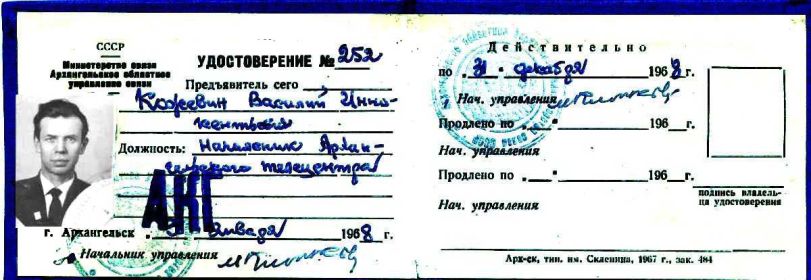 СССР
Министерство связи
Архангельское областное
управление связи
УДОСТОВЕРЕНИЕ № 252
Предъявитель сего
Василий Инно-
кентьевич
Должность: Начальник Архан-
гельского телецентра
АКГ
г. Архангельск января 1968 г.
Начальник управления
Действительно
по „31“ декабря 1968 г.
Нач. управления
Продлено по „ “ 196 г.
Нач. управления
Продлено по „ “ 196 г.
Нач. управления
подпись владель-
ца удостоверения
Арх-ск, тип. им. Склепина, 1967 г., зак. 484